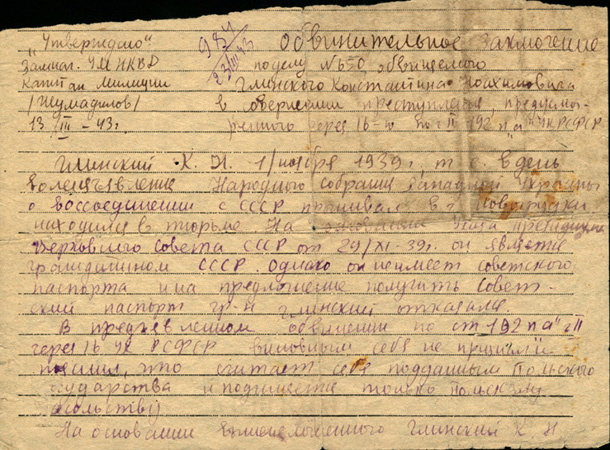 „Утверждаю" 984 Обвинительное заключение
Замнач. УМ НКВД 23/III 43 по делу № 650 обвиняемого
Капитан Милиции Глинского Константина Иоахимовича
/Жумадилов/ в совершении преступления, предусмот-
13/III-43г. ренного через 16-ю по ст 192 п „а" УК РСФСР
Глинский К. И. 1/ноября 1939г, т. е. в день
волеизъявления Народного собрания Западной Украины
о воссоединении с СССР проживал в г.
находился в тюрьме На Указа президиума
Верховного Совета СССР от 29/XI-39г. он является
гражданином СССР. Однако он не имеет советского
паспорта и на предложение получить Совет-
ский паспорт гр-н Глинский отказался.
В предъявленном обвинении по ст 192 п „а"
через 16 УК РСФСР виновным себя не признал и
что считает себя подданным Польского
государства и подчиняется только Польскому
посольству
На основании вышеизложенного Глинский К. И.